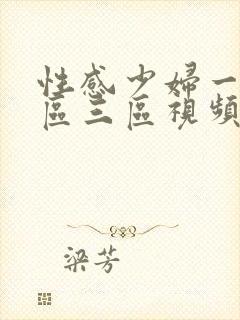 性感少婦一
區三區視頻
梁芳